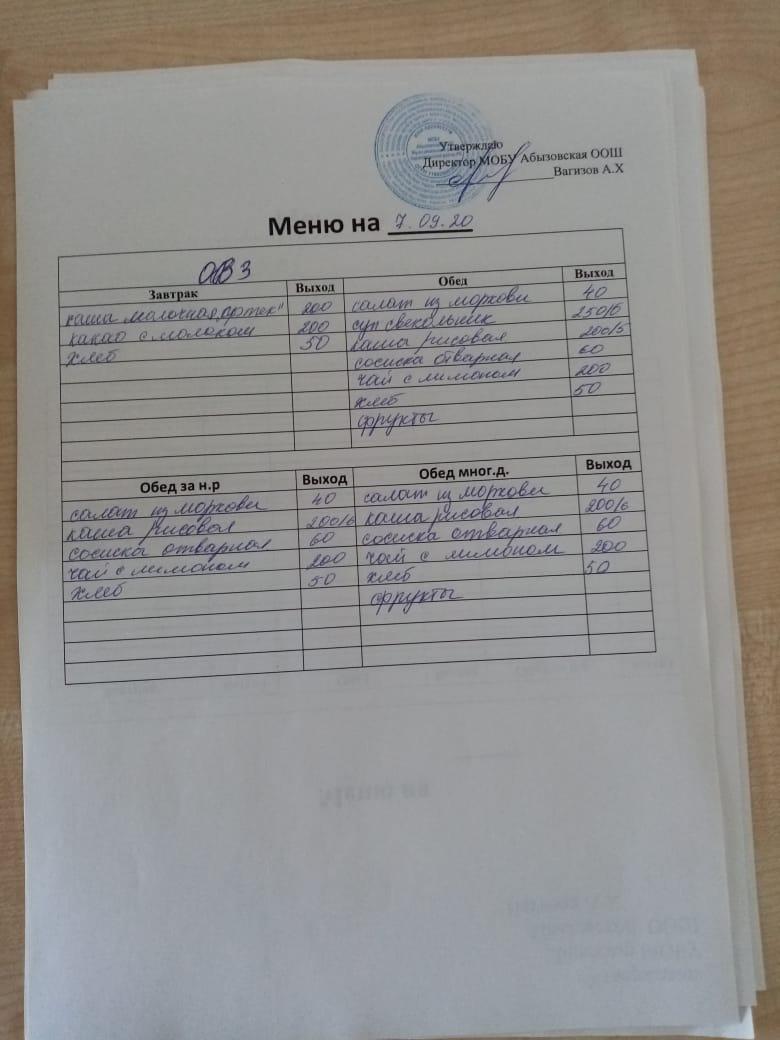 Утверждаю
Директор МОБУ Абызовская ООШ
Вагизов А.Х
Меню на 7.09.20
ОВЗ
Завтрак Выход Обед Выход
каша молочная „Артек" 200 салат из моркови 40
какао с молоком 200 суп свекольник 250/5
хлеб 50 каша рисовая 200/5
сосиска отварная 60
чай с лимоном 200
хлеб 50
фрукты
Обед за н.р Выход Обед мног.д. Выход
салат из моркови 40 салат из моркови 40
каша рисовая 200/6 каша рисовая 200/6
сосиска отварная 60 сосиска отварная 60
чай с лимоном 200 чай с лимоном 200
хлеб 50 хлеб 50
фрукты